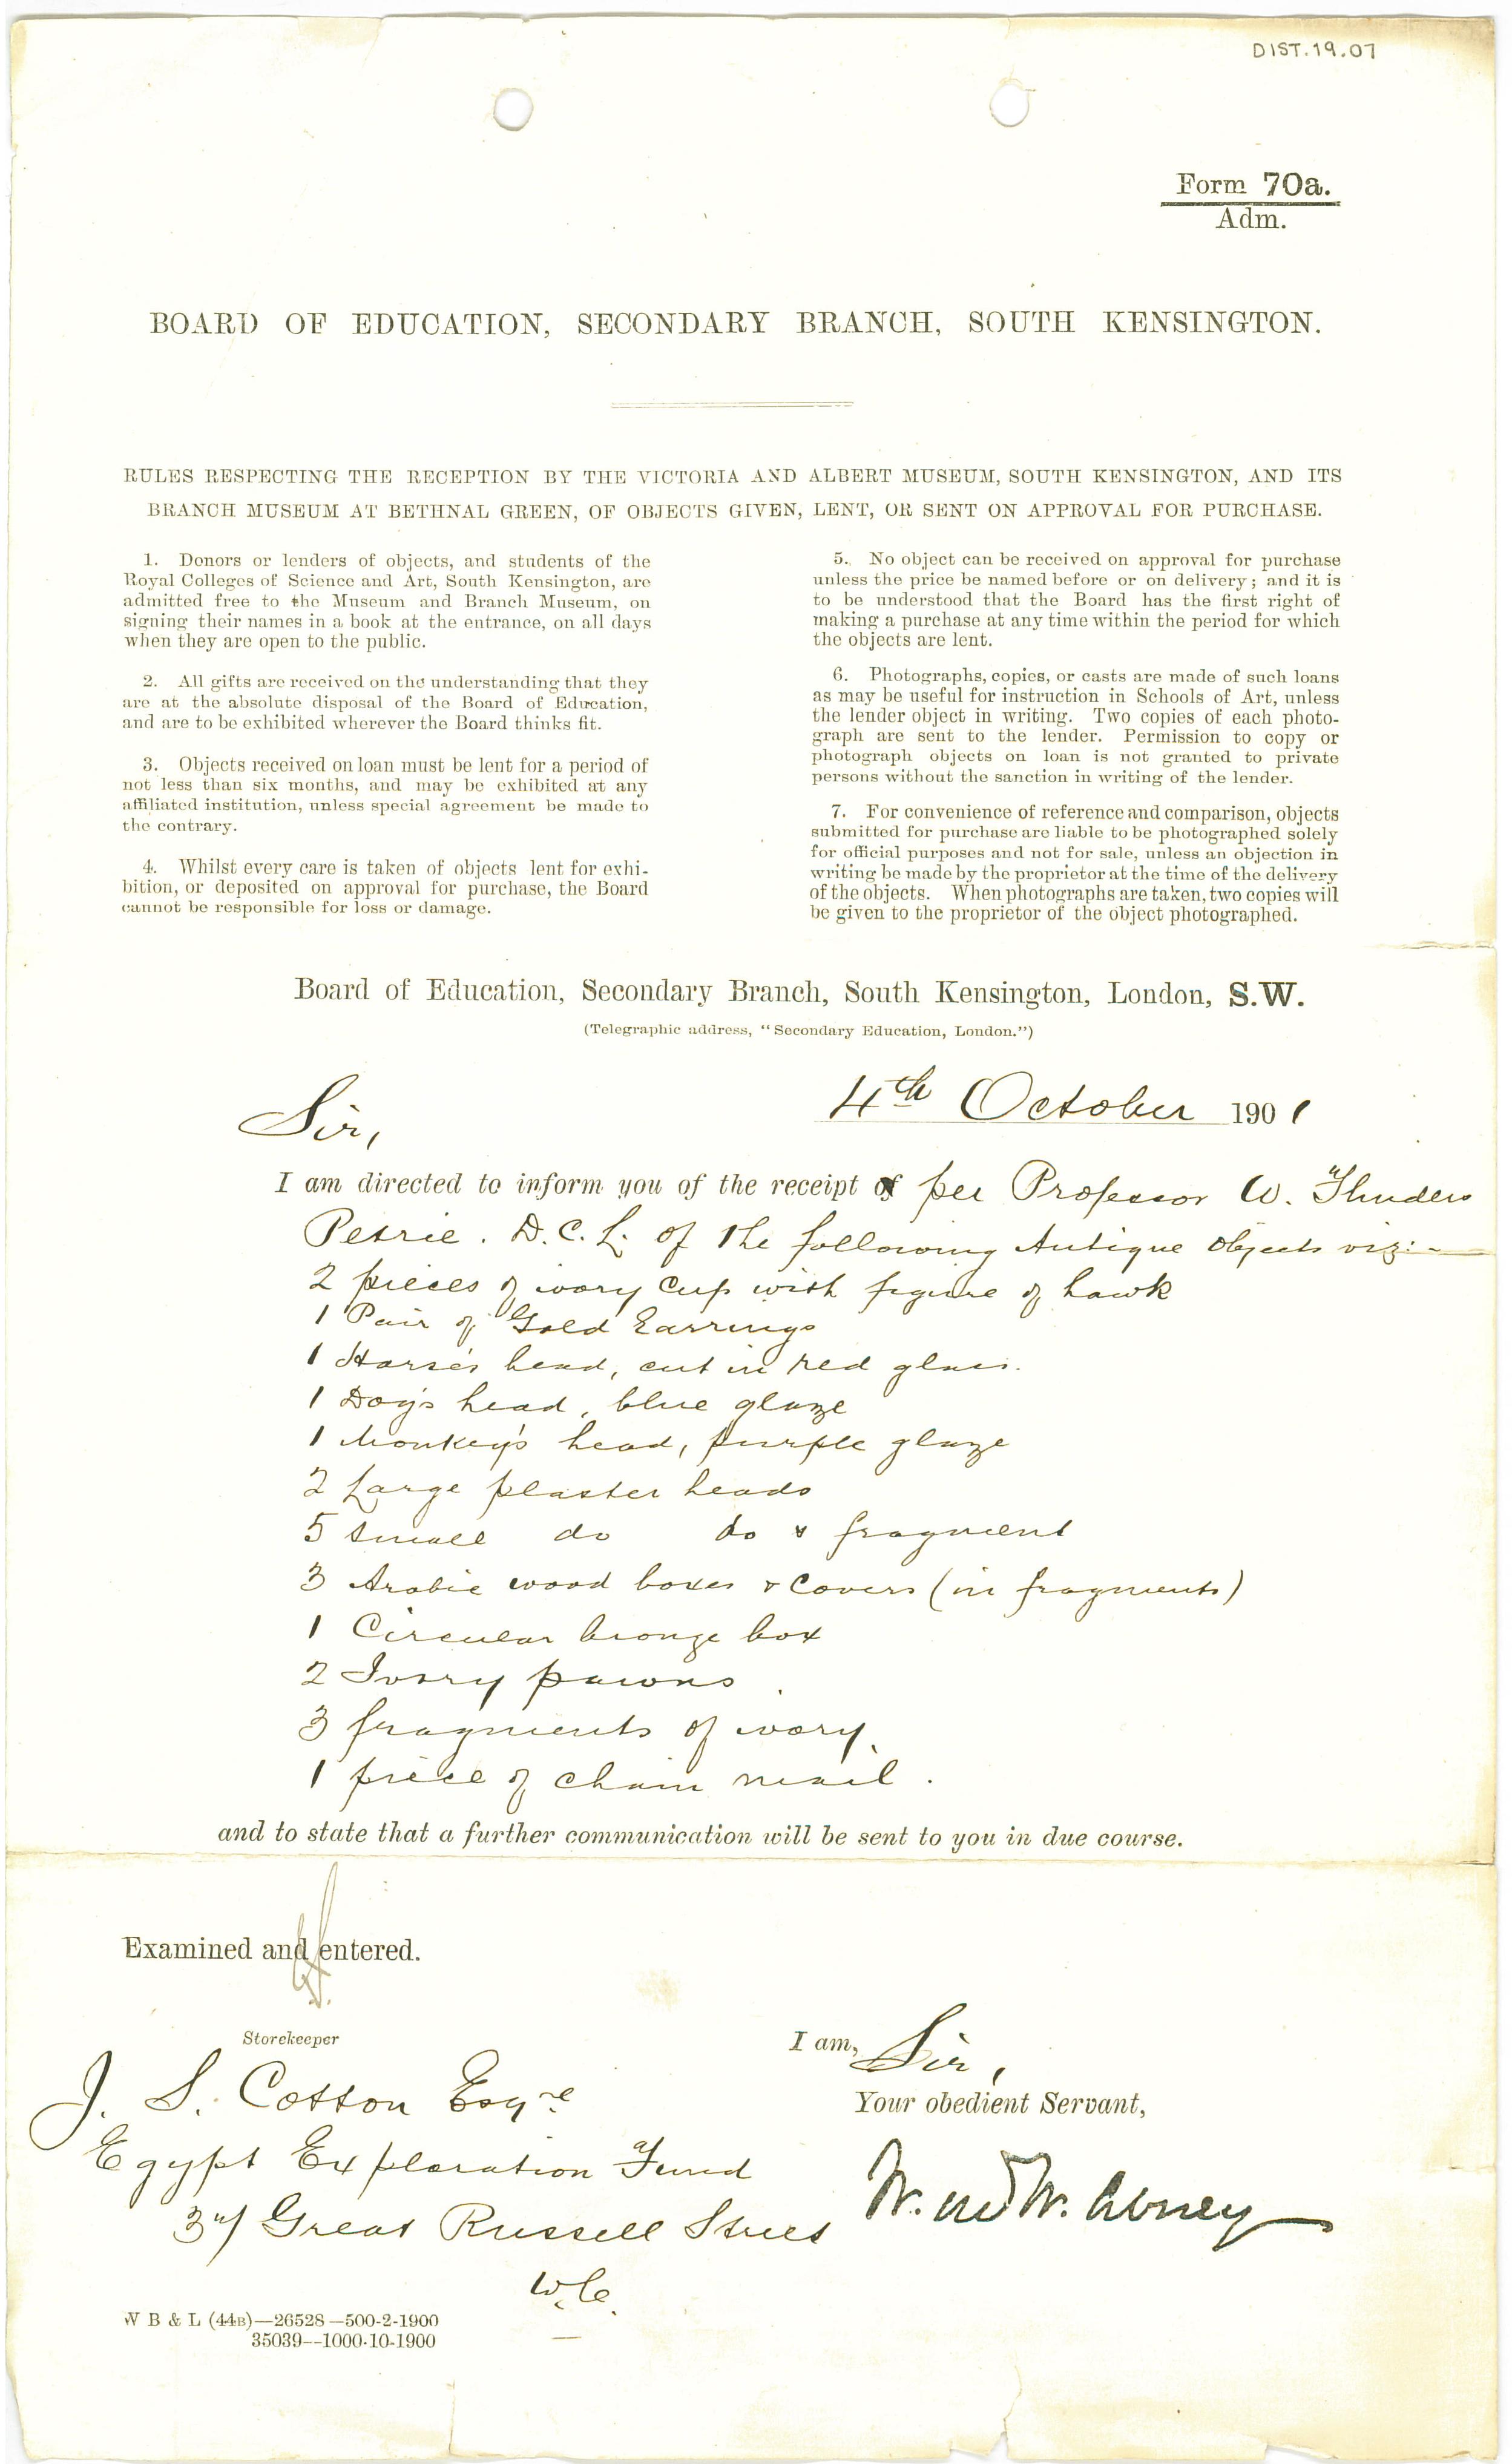 DIST.19.07
Form 70a.
Adm.
BOARD OF EDUCATION, SECONDARY BRANCH, SOUTH KENSINGTON.
RULES RESPECTING THE RECEPTION BY THE VICTORIA AND ALBERT MUSEUM, SOUTH KENSINGTON, AND ITS
BRANCH MUSEUM AT BETHNAL GREEN, OF OBJECTS GIVEN, LENT, OR SENT ON APPROVAL FOR PURCHASE.
1. Donors or lenders of objects, and students of the
Royal Colleges of Science and Art, South Kensington, are
admitted free to the Museum and Branch Museum, on
signing their names in a book at the entrance, on all days
when they are open to the public.
2. All gifts are received on the understanding that they
are at the absolute disposal of the Board of Education,
and are to be exhibited wherever the Board thinks fit.
3. Objects received on loan must be lent for a period of
not less than six months, and may be exhibited at any
affiliated institution, unless special agreement be made to
the contrary.
4. Whilst every care is taken of objects lent for exhi-
bition, or deposited on approval for purchase, the Board
cannot be responsible for loss or damage.
5. No object can be received on approval for purchase
unless the price be named before or on delivery; and it is
to be understood that the Board has the first right of
making a purchase at any time within the period for which
the objects are lent.
6. Photographs, copies, or casts are made of such loans
as may be useful for instruction in Schools of Art, unless
the lender object in writing. Two copies of each photo-
graph are sent to the lender. Permission to copy or
photograph objects on loan is not granted to private
persons without the sanction in writing of the lender.
7. For convenience of reference and comparison, objects
submitted for purchase are liable to be photographed solely
for official purposes and not for sale, unless an objection in
writing be made by the proprietor at the time of the delivery
of the objects. When photographs are taken, two copies will
be given to the proprietor of the object photographed.
Board of Education, Secondary Branch, South Kensington, London, S.W.
(Telegraphic address, "Secondary Education, London.")
4th October 1901
Sir,
I am directed to inform you of the receipt of per Professor W. Flinders
Petrie. D.C.L. of the following Antique Objects viz:-
2 pieces of ivory cup with figure of hawk
1 Pair of Gold Earrings
1 Horse's head, cut in red glass.
1 Dog's head, blue glaze
1 Monkey's head, purple glaze
2 Large plaster heads
5 small do do & fragment
3 Arabic wood boxes & Covers (in fragments)
1 Circular bronze box
2 Ivory pawns.
3 fragments of ivory.
1 piece of chain mail.
and to state that a further communication will be sent to you in due course.
Examined and entered.
Storekeeper
I am, Sir,
Your obedient Servant,
W. de W. Abney
J. S. Cotton Esqre
Egypt Exploration Fund
37 Great Russell Street
W.C.
W B & L (44B)—26528—500-2-1900
35039--1000-10-1900